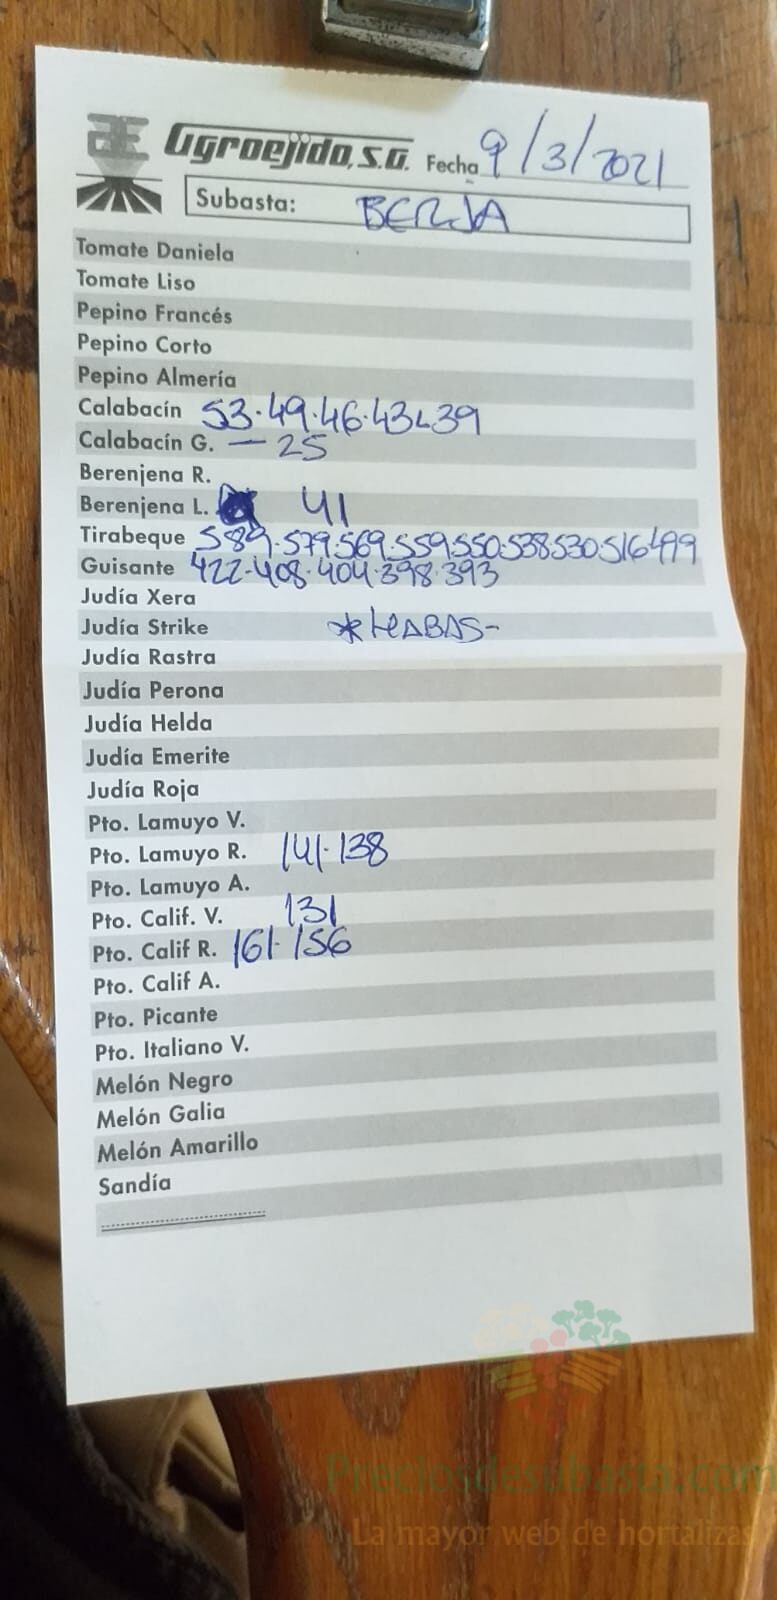 Agroejido, S.A. Fecha 9/3/2021
Subasta: BERJA
Tomate Daniela
Tomate Liso
Pepino Francés
Pepino Corto
Pepino Almería
Calabacín 53.49.46.43-39
Calabacín G. — 25
Berenjena R.
Berenjena L. 41
Tirabeque 589.579.569.559.550.538.530.516.499
Guisante 422-408.404.398.393
Judía Xera
Judía Strike *HABAS-
Judía Rastra
Judía Perona
Judía Helda
Judía Emerite
Judía Roja
Pto. Lamuyo V.
Pto. Lamuyo R. 141.138
Pto. Lamuyo A.
Pto. Calif. V. 131
Pto. Calif R. 161.156
Pto. Calif A.
Pto. Picante
Pto. Italiano V.
Melón Negro
Melón Galia
Melón Amarillo
Sandía
Preciosdesubasta.com
La mayor web de hortalizas